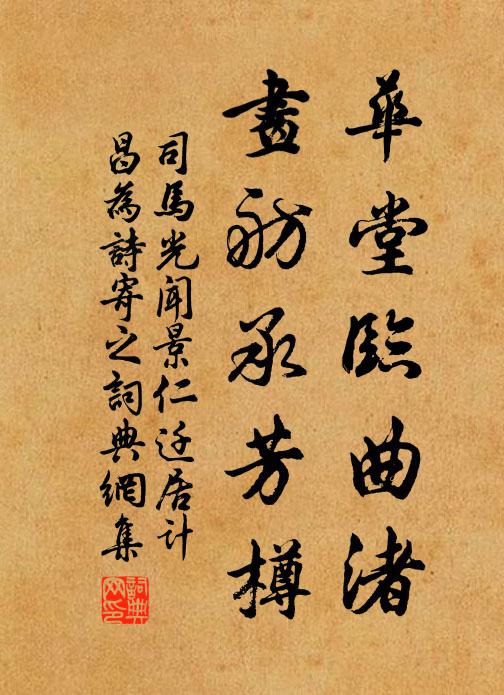 華堂臨曲渚
畫舫承芳樽
司馬光聞景仁迁居計
昌為詩寄之詞典網集
詞典
网印